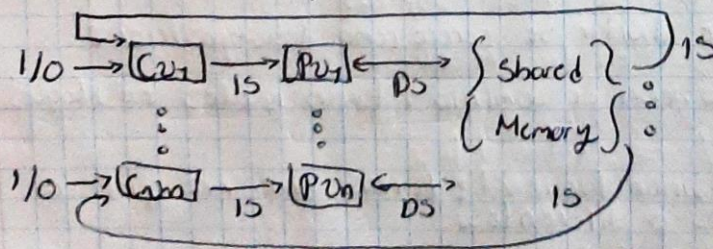 I/O CU1 IS PU1 DS Shared IS
Memory
I/O CUn IS PUn DS IS